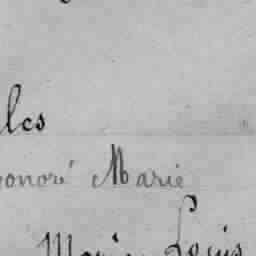 les
onoré Marie
Marie Louis